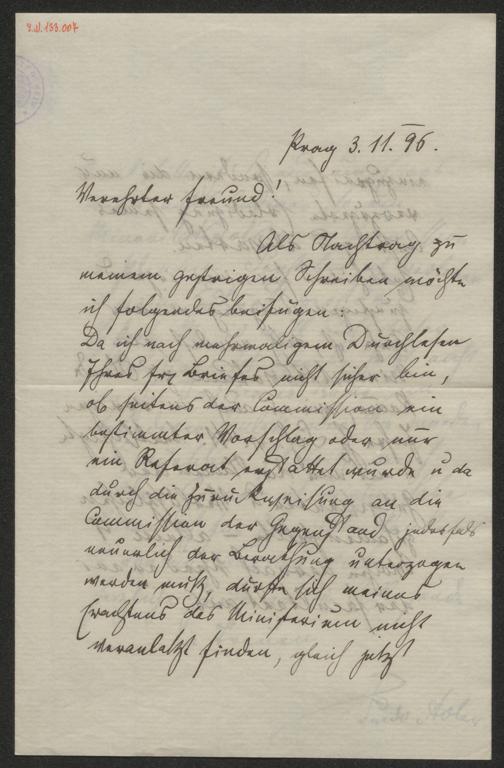 I.N. 133.007
Prag 3. 11. 96.
Verehrter Freund!
Als Nachtrag zu
meinem gestrigen Schreiben möchte
ich folgendes beifügen:
Da ich nach mehrmaligem Durchlesen
Ihres frdl Briefes nicht sicher bin,
ob seitens der Commission ein
bestimmter Vorschlag oder nur
ein Referat erstattet wurde u da
durch die Zurückweisung an die
Commission der Gegenstand jedesfalls
neuerlich der Berathung unterzogen
werden muß, dürfte sich meines
Erachtens das Ministerium nicht
veranlaßt finden, gleich jetzt